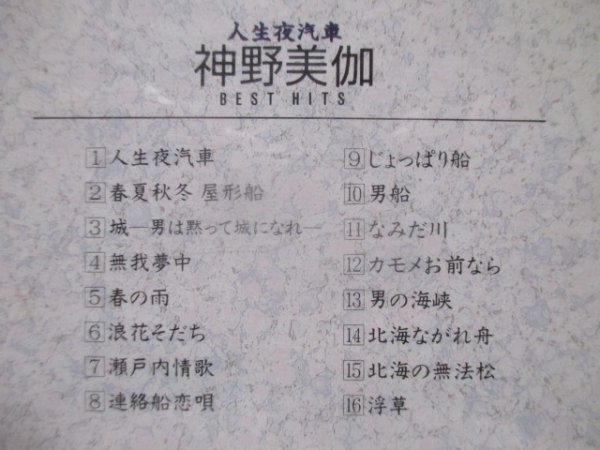 人生夜汽車
神野美伽
BEST HITS
1 人生夜汽車
2 春夏秋冬 屋形船
3 城―男は黙って城になれ―
4 無我夢中
5 春の雨
6 浪花そだち
7 瀬戸内情歌
8 連絡船恋唄
9 じょっぱり船
10 男船
11 なみだ川
12 カモメお前なら
13 男の海峡
14 北海ながれ舟
15 北海の無法松
16 浮草